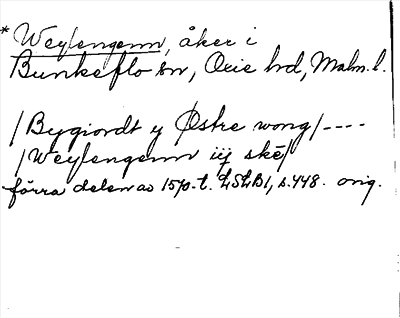 * Weylengenn, åker i
Bunkeflo sn, Oxie hd, Malm. l.
/Bygiordt y Østre wong/----
/Weylengenn iij skē/
förra delen av 1570-t. LSLB1, s.448. orig.